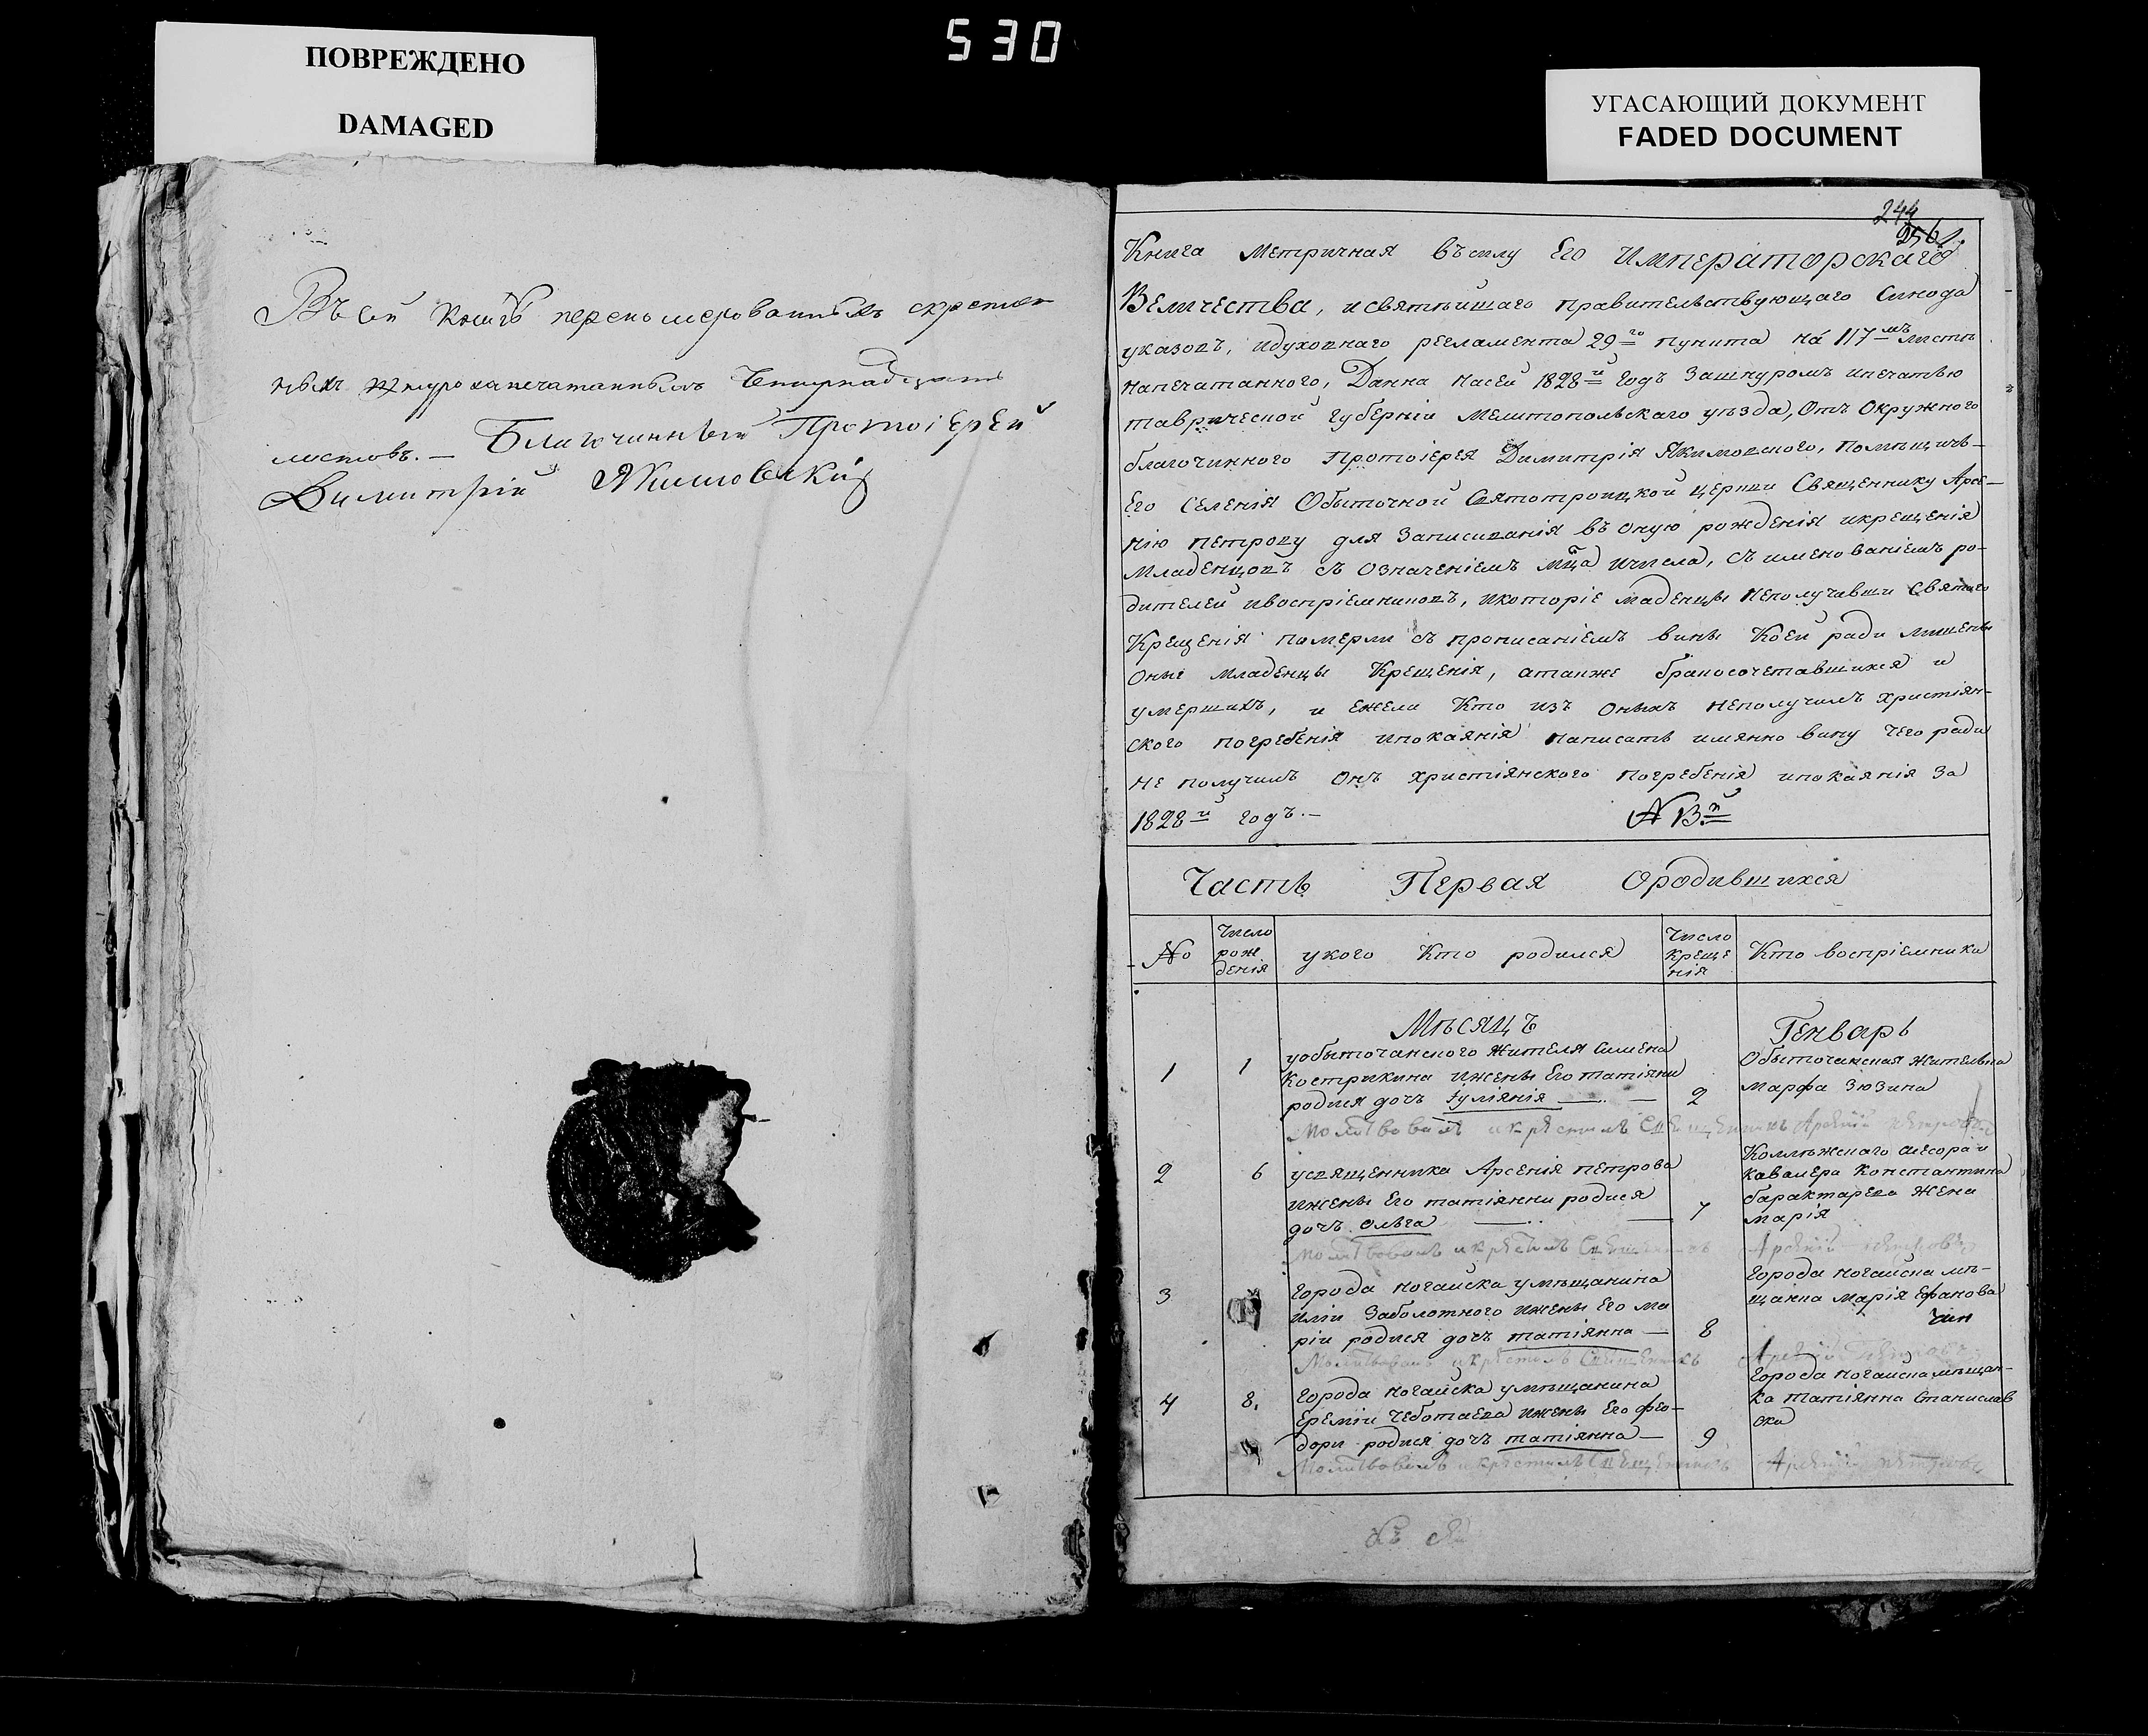 ПОВРЕЖДЕНО
DAMAGED
530
УГАСАЮЩИЙ ДОКУМЕНТ
FADED DOCUMENT
Въ сей книгѣ перенумерованныхъ скрѣплен
ныхъ шнуро запечатанныхъ Четырнадцать
листовъ. — Благочинный Протоіерей
Димитрій Якимовскій
244
256
Книга Метричная въсилу Его Императорскаго
Величества, исвятѣйшаго правительствующаго Синода
указовъ, идуховнаго регламента 29го пункта на 117мъ листѣ
напечатанного, Данна насей 1828й годъ Зашнуромъ ипечатью
таврической губерніи Мелитопольскаго уѣзда, Отъ Окружного
благочинного Протоіерея Димитрія Якимовского, помѣщичь-
Его Селенія Обыточной Святотроицкой церкви Священнику Арсе-
нію петрову для Записиванія въ оную рожденія икрещенія
Младенцовъ съ означеніемъ мца ичисла, съ именованіемъ ро-
дителей ивоспріемниковъ, икоторіе маденцы неполучавши Святаго
Крещенія померли съ прописаніемъ вины Коей ради лишены
Оные младенцы Крещенія, атакже бракосочетавшихся и
умершихъ, и ежели Кто изъ оныхъ неполучилъ христіян-
ского погребенія ипокаянія написать имянно вину чего ради
не получилъ онъ христіянского погребенія ипокаянія За
1828й годъ.—
Часть Первая Ородившихся
No
Число рож денія
укого Кто родился
Число креще нія
Кто воспріемники
Мѣсяцъ Генварь
1 1 уобыточанского Жителя Симена
Кострикина ижены Его татіяни
родися дочъ Іуліянія — 2
Обыточанская Жителька
Марфа Зюзина
Молитвовалъ икрестилъ Священникъ Арсеній петровъ
2 6 усвященника Арсенія петрова
ижены Его татіянни родися
дочъ Ольга — 7
Коллѣжского асесора и
Кавалера Константина
барактарева Жена
Марія
Молитвовалъ икрестилъ Священникъ Арсеній петровъ
3 города ногайска умѣщанина
иліи Заболотного ижены Его ма
ріи родися дочъ татіянна — 8
города ногайска мѣ-
щанка Марія Ефанова
Молитвовалъ икрестилъ Священникъ Арсеній Петровъ
4 8. города ногайска умѣщанина
Ереміи Чеботаева ижены Его фео-
дори родися дочъ татіянна — 9
города ногайска мѣщан-
ка татіянна Станислав
ска
Молитвовалъ икрестилъ Священникъ Арсеній петровъ